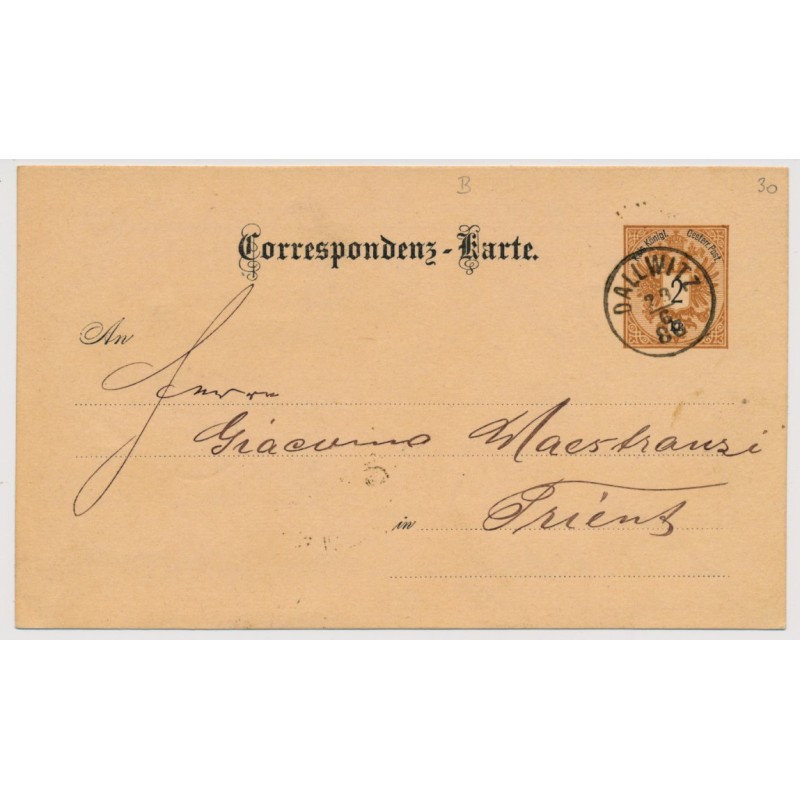 B 30
Correspondenz-Karte.
Königl. Oesterr. Post
2
DALLWITZ
An
Herrn
Giacomo Maestranzi
in Trient